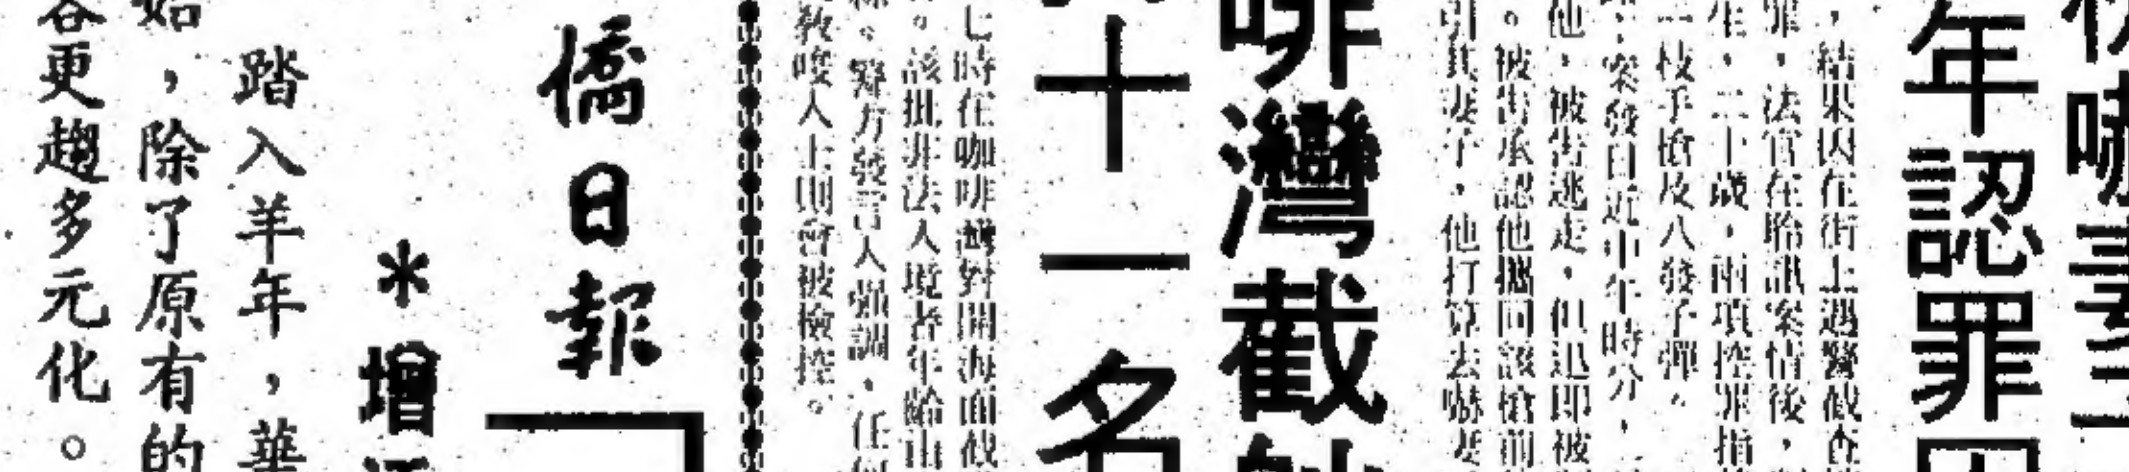 嚇妻二
年認罪囚
，結果因在街上遇警截查
罪，法官在聆訊案情後，
生，二十歲，兩項控罪指
一枝手槍及八發子彈。
案發日近中午時分，
他，被告逃走，但迅即被
。被告承認他攜同該槍前
引其妻子，他打算去嚇妻
啡灣截
十一名
七時在咖啡灣對開海面截
。該批非法入境者年齡由
。警方發言人強調，任何
教唆人士則會被檢控。
僑日報
*增
踏入羊年，華
始，除了原有的
容更趨多元化。